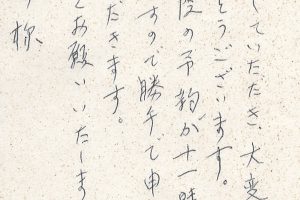 していただき、大変
とうございます。
院の予約が十一時
すので勝手で申
だきます。
とお願いいたしま
様